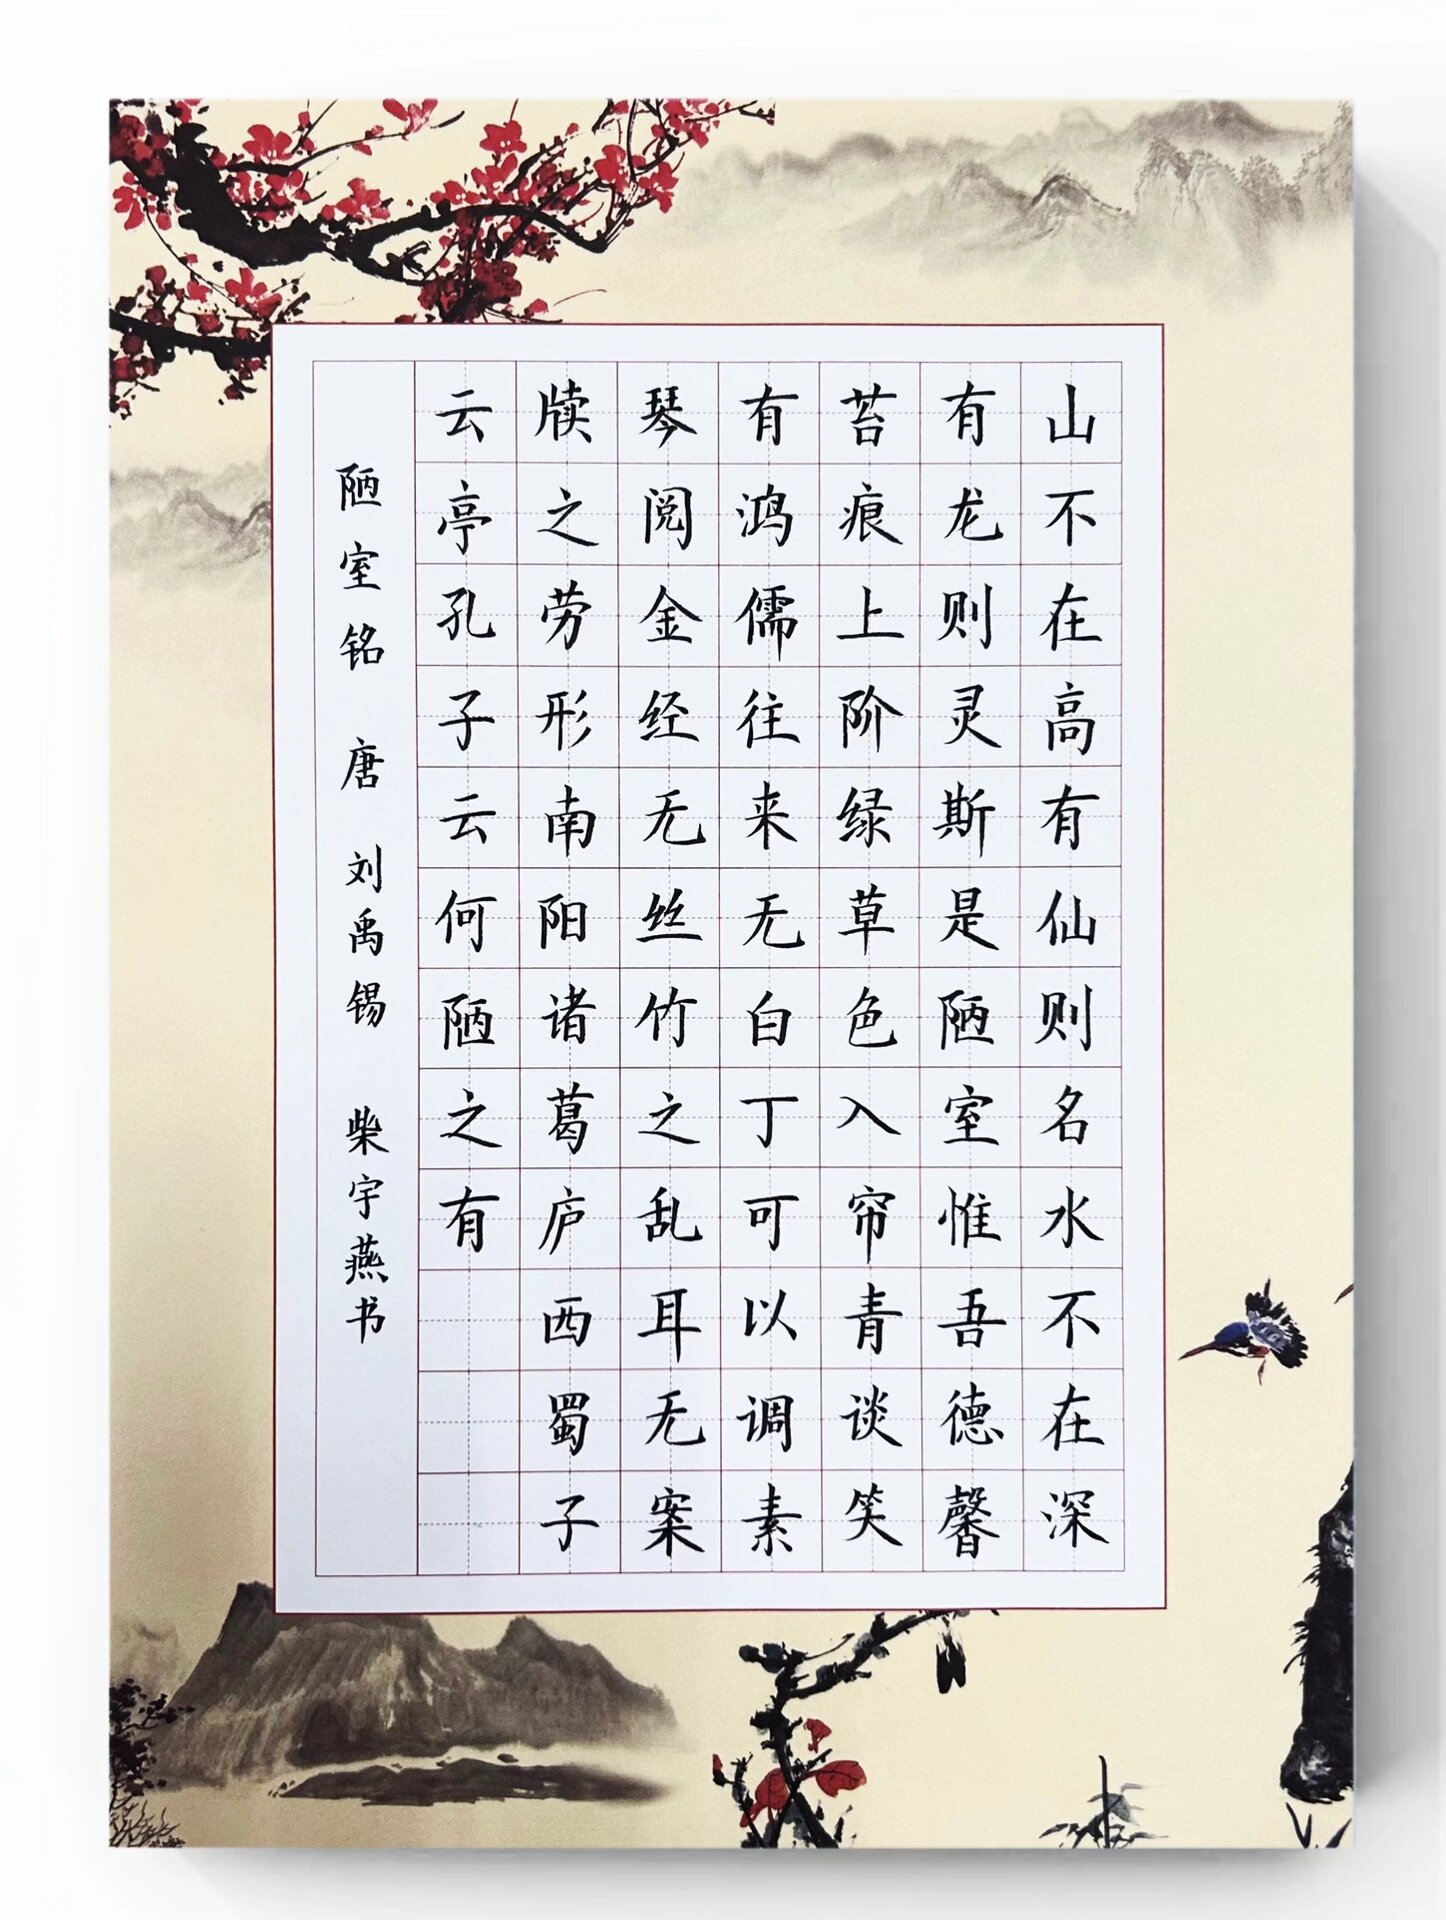 山不在高有仙则名水不在深
有龙则灵斯是陋室惟吾德馨
苔痕上阶绿草色入帘青谈笑
有鸿儒往来无白丁可以调素
琴阅金经无丝竹之乱耳无案
牍之劳形南阳诸葛庐西蜀子
云亭孔子云何陋之有
陋室铭 唐 刘禹锡 柴宇燕书